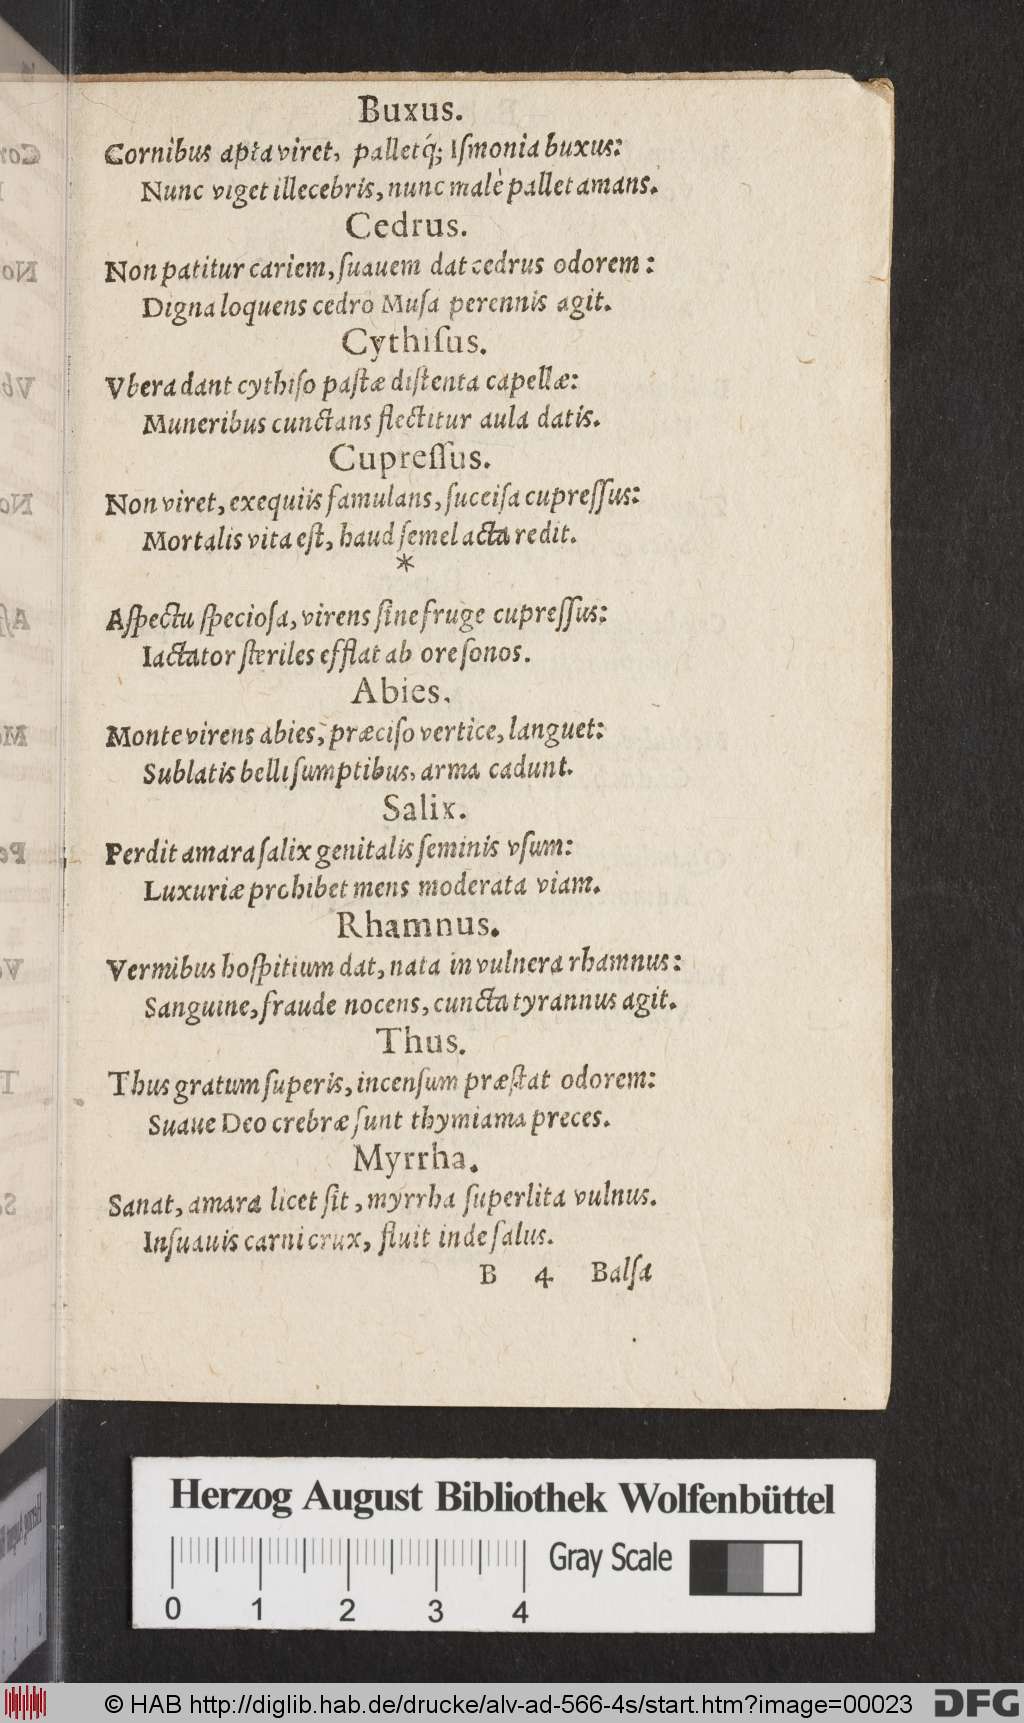 Buxus.
Cornibus apta viret, palletq́; Iſmonia buxus:
Nunc viget illecebris, nunc malè pallet amans.
Cedrus.
Non patitur cariem, ſuauem dat cedrus odorem:
Digna loquens cedro Muſa perennis agit.
Cythiſus.
Vbera dant cythiſo paſtæ diſtenta capellæ:
Muneribus cunctans flectitur aula datis.
Cupreſſus.
Non viret, exequiis famulans, ſucciſa cupreſſus:
Mortalis vita eſt, haud ſemel acta redit.
*
Aſpectu ſpecioſa, virens ſine fruge cupreſſus:
Iactator ſteriles efflat ab ore ſonos.
Abies.
Monte virens abies, præciſo vertice, languet:
Sublatis belli ſumptibus, arma cadunt.
Salix.
Perdit amara ſalix genitalis ſeminis vſum:
Luxuriæ prohibet mens moderata viam.
Rhamnus.
Vermibus hoſpitium dat, nata in vulnera rhamnus:
Sanguine, fraude nocens, cuncta tyrannus agit.
Thus.
Thus gratum ſuperis, incenſum præſtat odorem:
Suaue Deo crebræ ſunt thymiama preces.
Myrrha.
Sanat, amara licet ſit, myrrha ſuperlita vulnus.
Inſuauis carni crux, fluit inde ſalus.
B 4 Balſa
Herzog August Bibliothek Wolfenbüttel
Gray Scale
0 1 2 3 4
© HAB http://diglib.hab.de/drucke/alv-ad-566-4s/start.htm?image=00023
DFG